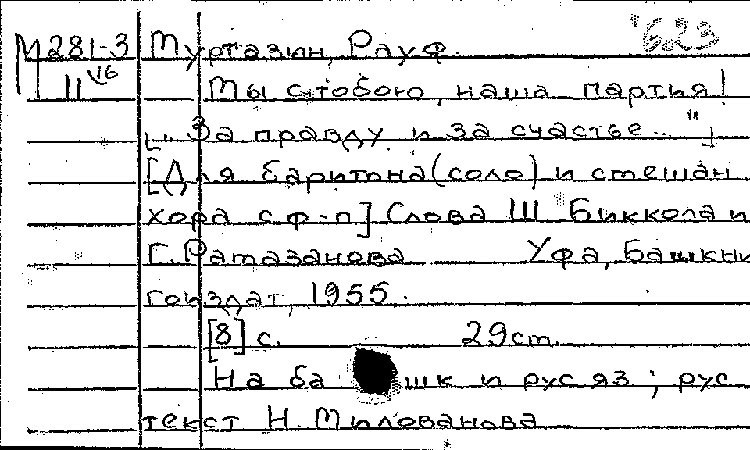 М 281-3 Муртазин, Рауф.
II V6 Мы с тобою, наша партия!
[„За правду и за счастье..."]
[Для баритона (соло) и смешан.
хора с ф-п] Слова Ш. Биккола и
Г. Рамазанова Уфа, Башкни
гоиздат, 1955.
[8] с. 29 cm.
На башк и рус яз; рус
текст Н. Милованова